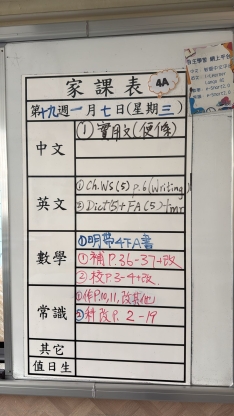 家課表 4A
第十九週一月七日(星期三)
中文
① 實用文(便條)
英文
① Ch.WS(5) P.6(Writing)
② Dict(5)+FA(5)-1mr
數學
① 明帶4下A書
① 補P.36-37+改
② 校P.3-4+改
常識
① 作P.10,11,改其他
② 科改P.2-19
其它
值日生
自主學習 網上平台